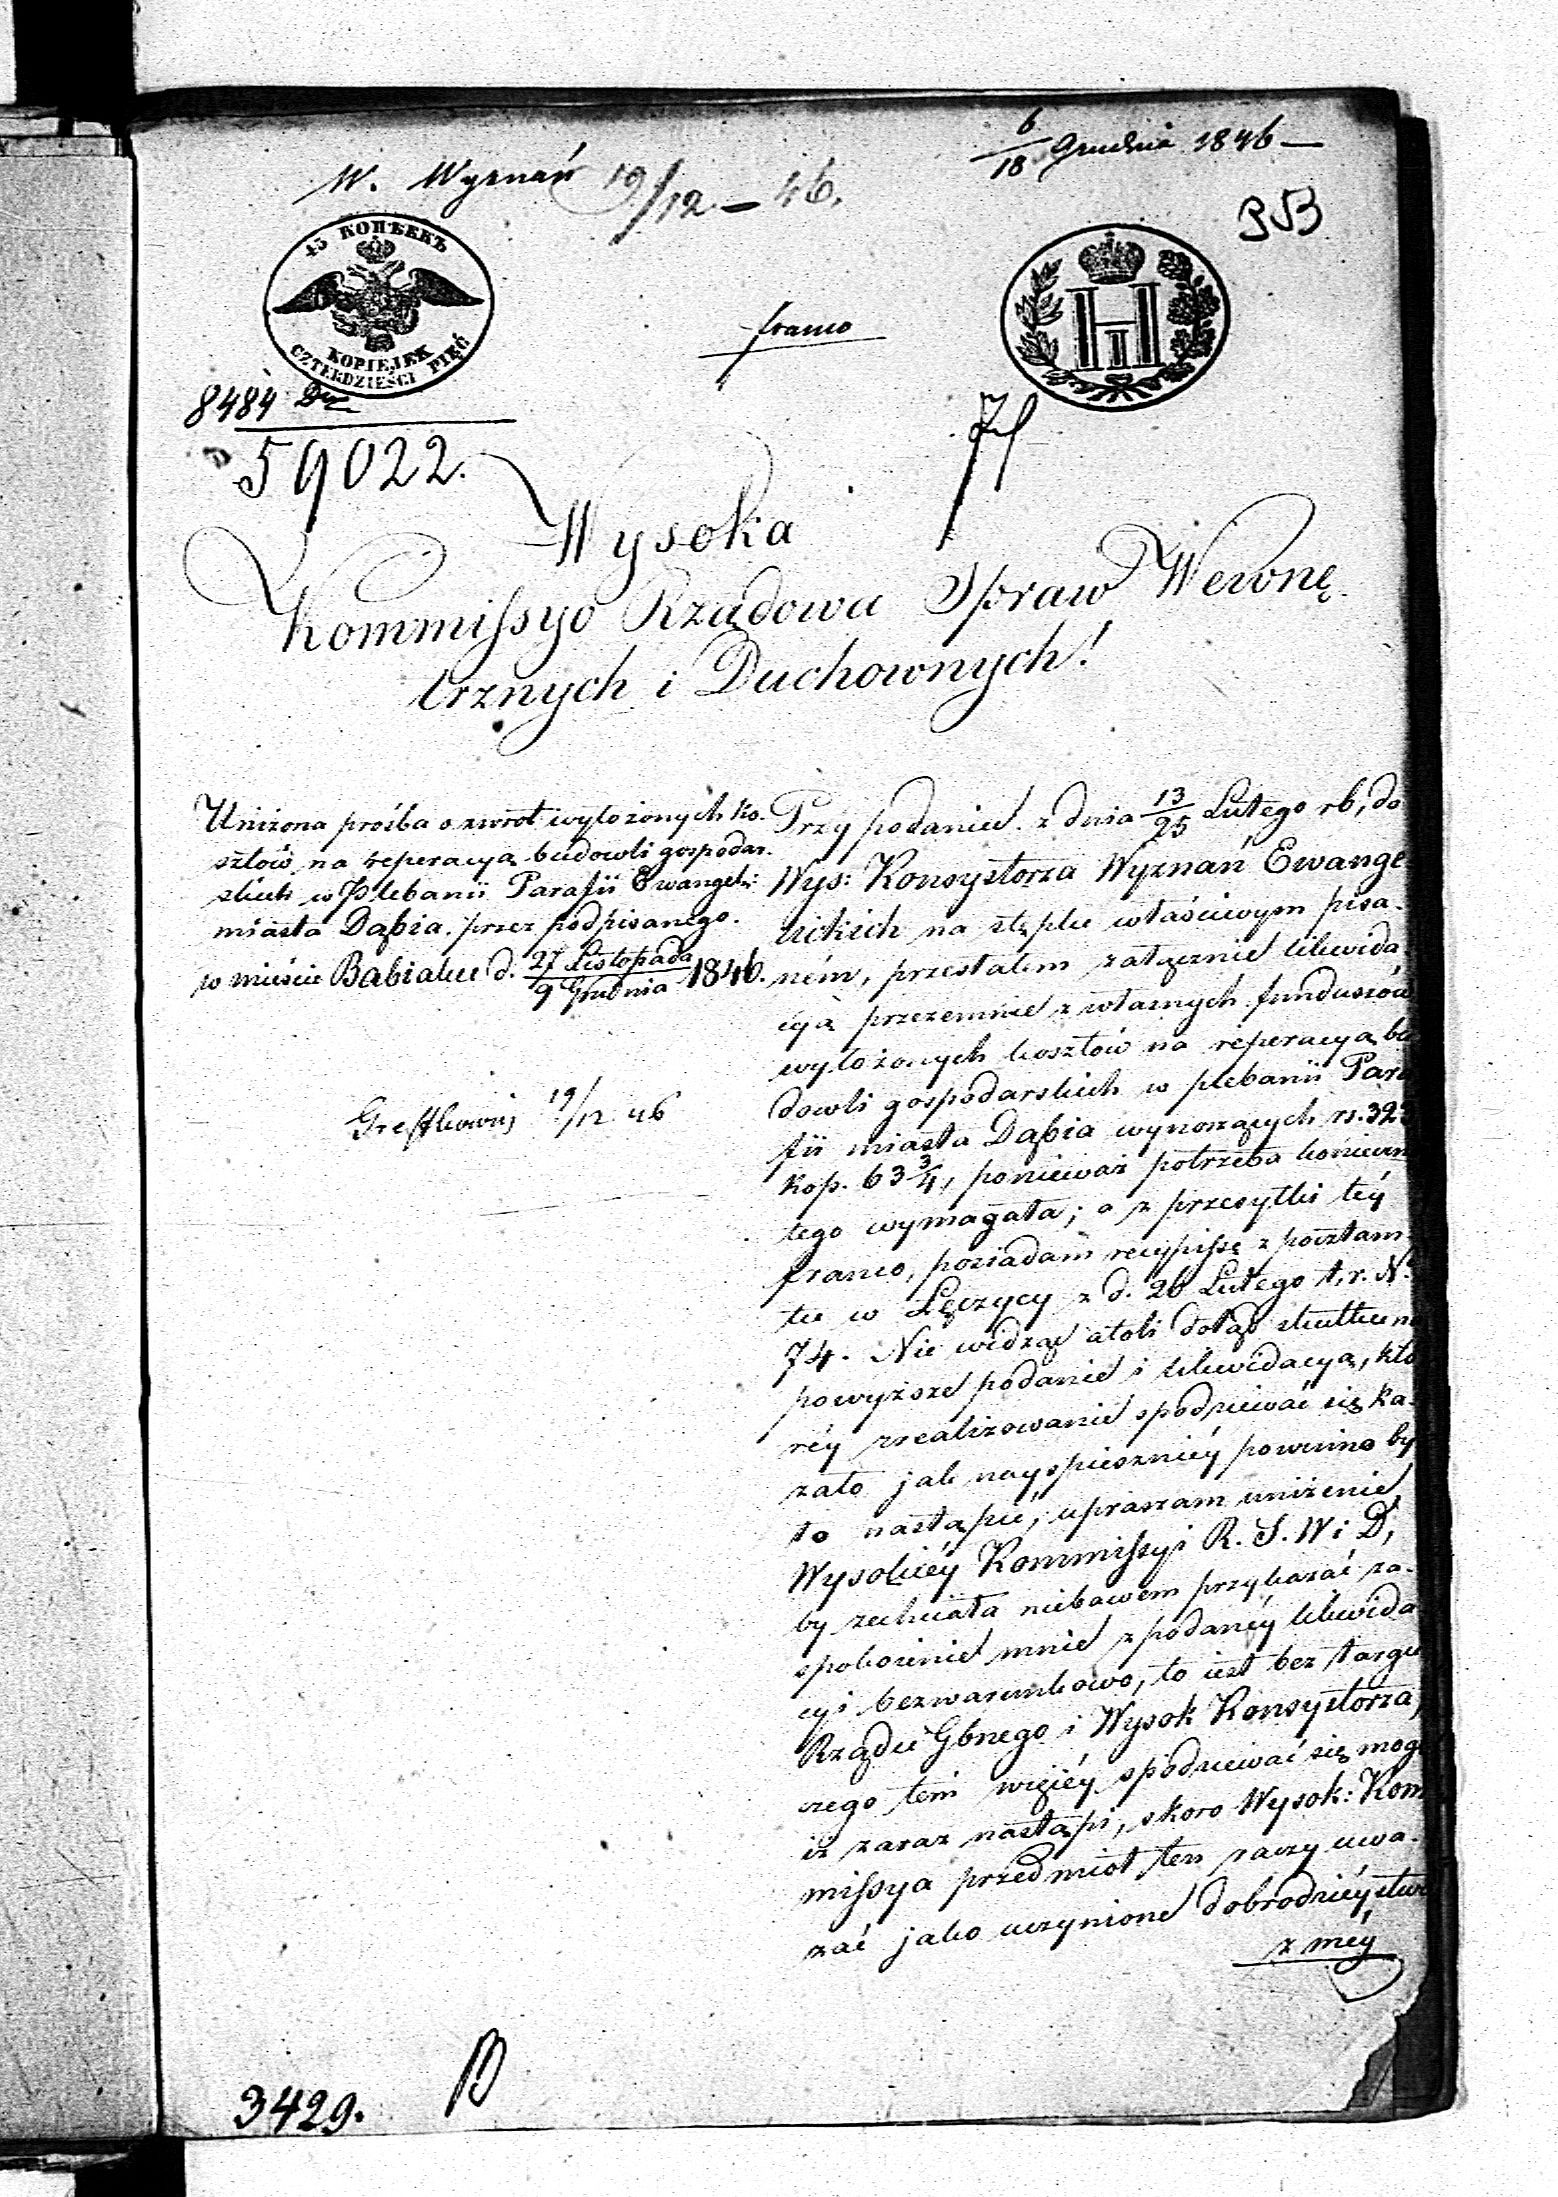 6/18 Grudnia 1846 —
W. Wyznań 19/12 — 46.
45 КОПѢЕКЪ
KOPIEJEK
CZTERDZIEŚCI PIĘĆ
franco
8484
59022.
Wysoka
Kommissyo Rządowa Spraw Wewnę
trznych i Duchownych!
Uniżona prośba o zwrot wyłożonych ko-
sztów na reperacyą budowli gospodar-
skich w Plebanii Parafii Ewangeli:
miasta Dąbia przez podpisanego.
w mieście Babiaku d. 27 Listopada / 9 Grudnia 1846.
19/12 46
Przy podaniu z dnia 13/25 Lutego rb, do
Wys: Konsystorza Wyznań Ewange
lickich na stęplu właściwym pisa-
ném, przesłałem załącznie likwida-
cyą przezemnie z własnych funduszów
wyłożonych kosztów na reperacyą bu
dowli gospodarskich w plebanii Para
fii miasta Dąbia wynoszących rs. 323
kop. 63 3/4, ponieważ potrzeba konieczn
tego wymagała; a z przesyłki téy
franco, posiadam recypissę z pocztam-
tu w Łęczycy z d. 26 Lutego t. r. N.
74. Nie widząc atoli dotąd skutku na
powyższe podanie i likwidacyą, któ
réy zrealizowanie spodziewać się ka-
zało jak nayspieszniéy powinno by
to nastąpić, upraszam uniżenie
Wysokiéy Kommissyi R. S. W i D,
by zechciała niebawem przykazać za-
spokoienie mnie z podanéy likwida
cyi bezwarunkowo, to iest bez targu
Rządu Gbnego i Wysok Konsystorza,
czego tém więcéy spodziewać się mogę
iż zaraz nastąpi, skoro Wysok: Kom
missya przedmiot ten raczy uwa-
żać jako uczynione dobrodzieystwo
z méy
3429.